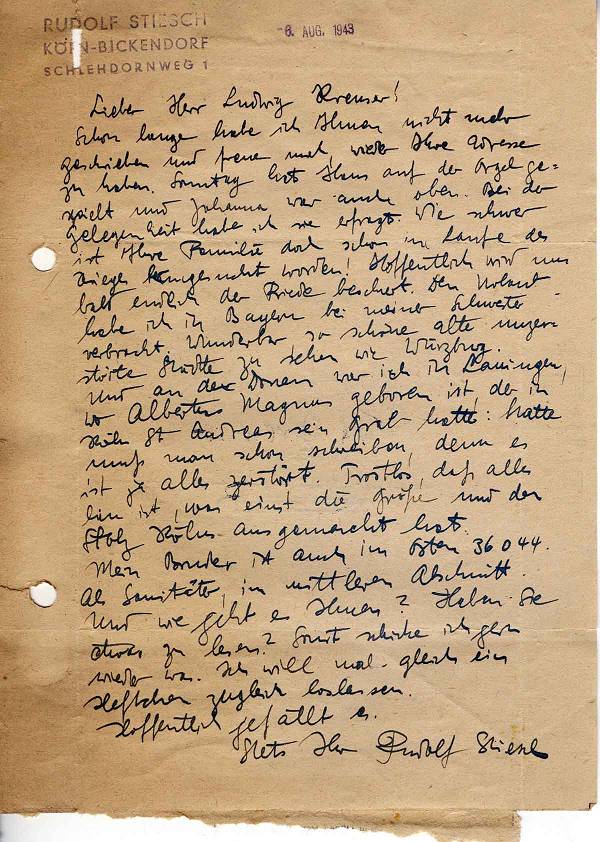 RUDOLF STIESCH
KÖLN-BICKENDORF
SCHLEHDORNWEG 1
-6. AUG. 1943
Lieber Herr Ludwig Kremser!
Schon lange habe ich Ihnen nicht mehr
geschrieben und freue mich, wieder Ihre Adresse
zu haben. Sonntag hat Hans auf der Orgel ge=
spielt und Johanna war auch oben. Bei der
Gelegenheit habe ich sie erfragt. Wie schwer
ist Ihre Familie doch schon im Laufe des
Krieges heimgesucht worden! Hoffentlich wird uns
bald endlich der Friede beschert. Den Urlaub
habe ich in Bayern bei meiner Schwester
verbracht. Wunderbar, so schöne alte unzer=
störte Städte zu sehen wie Würzburg.
Und an der Donau war ich in Lauingen,
wo Albertus Magnus geboren ist, der in
Köln St Andreas sein Grab hatte: hatte
muß man schon schreiben, denn es
ist ja alles zerstört. Trostlos, daß alles
hin ist, was einst die Größe und den
Stolz Kölns ausgemacht hat.
Mein Bruder ist auch im Osten 36044.
Als Sanitäter, im mittleren Abschnitt.
Und wie geht es Ihnen? Haben Sie
etwas zu lesen? Sonst schicke ich gern
wieder was. Ich will mal gleich ein
Heftchen zugleich loslassen.
Hoffentlich gefällt es.
Stets Ihr Rudolf Stiesch